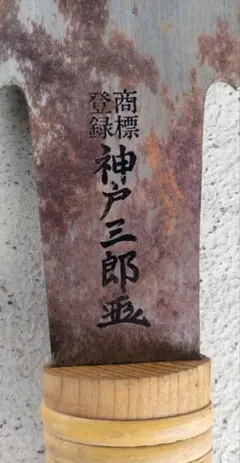 登録商標
神戸三郎